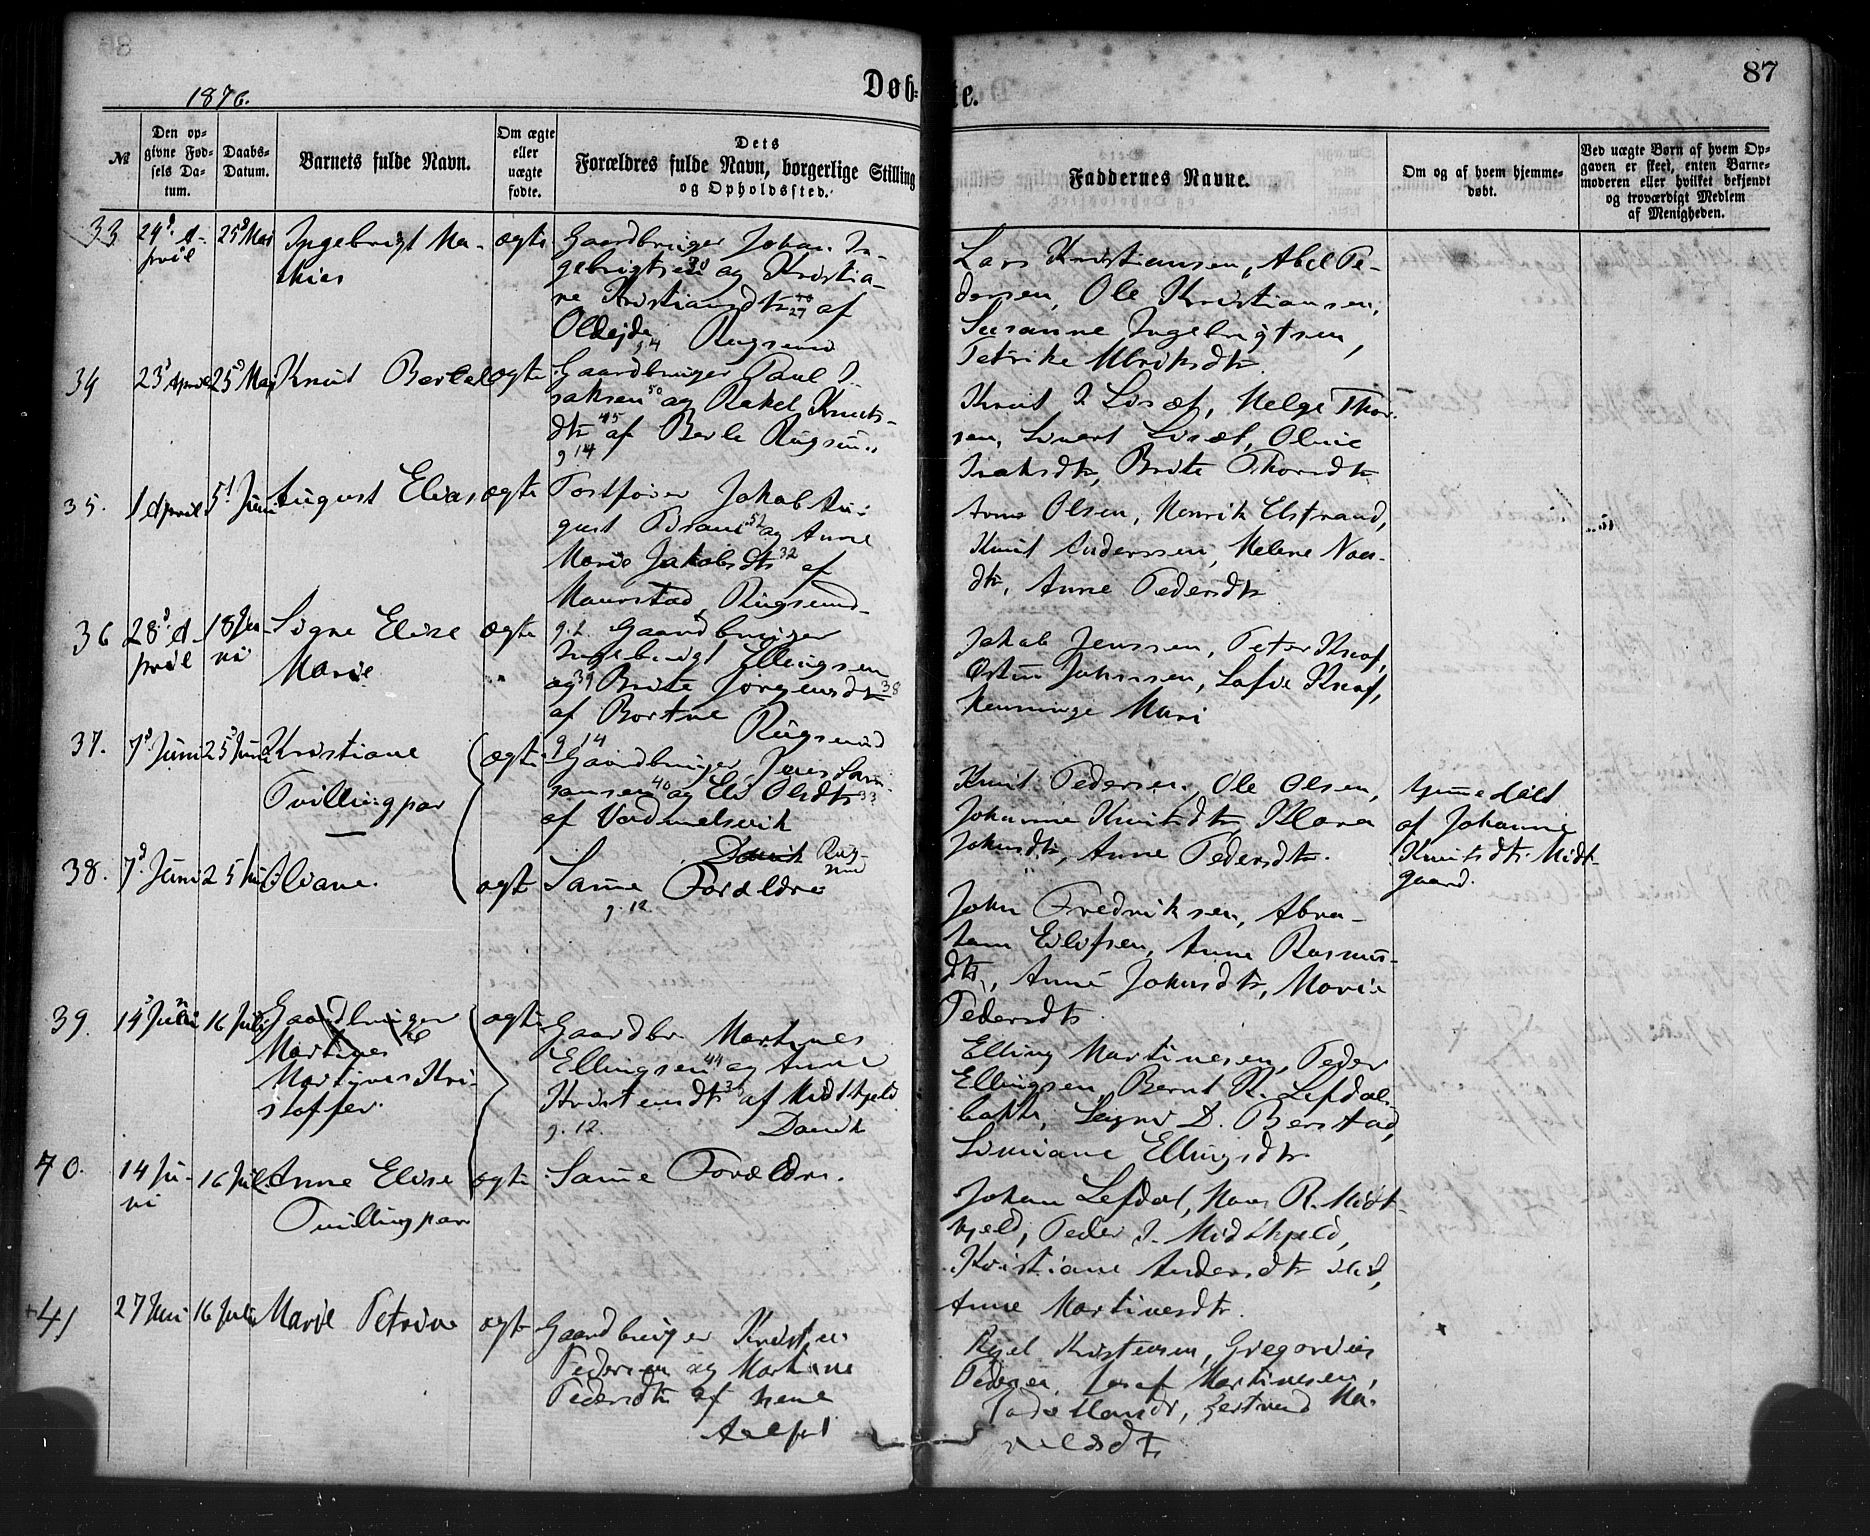 87
1876.
Døb-
te.
№
Den op-
givne Fød-
sels Da-
tum.
Daabs-
Datum.
Barnets fulde Navn.
Om ægte
eller
uægte
fødte.
Dets
Forældres fulde Navn, borgerlige Stilling
og Opholdssted.
Faddernes Navne.
Om og af hvem hjemme-
døbt.
Ved uægte Børn af hvem Op-
gaven er skeet, enten Barne-
moderen eller hvilket bekjendt
og troværdigt Medlem
af Menigheden.
33
April
25 Mai
Ingebrigt Ma-
thias
ægte
Gaardbruger Johan In-
gebrigtsen og Kristia-
ne Kristiansdtr af
Oldejde Rugsund
Lars Kristiansen, Abel Pe-
dersen, Ole Kristiansen,
Susanne Ingebrigtsen,
Petrike Ulriksdtr.
34
23 April
25 Mai
Knut Bertel
ægte
Gaardbruger Paul I-
saksen 50 og Rakel Knuts-
dtr 45 af Berle Rugsund
g 14
Knut I. Liset, Helge Thor-
sen, Sivert Liset, Oline
Isaksdtr, Brite Thorsdtr
35.
1 April
5 Juni
August Elias
ægte
Postfører Jakob Au-
gust og Anne
Marie Jakobsdtr 32 af
Maurstad, Rugsund
Arne Olsen, Henrik Elstrand,
Knut Anderssen, Helene
dtr, Anne Pedersdtr
36
28 A-
pril
18 Ju-
ni
Signe Elise
Marie
ægte
Gaardbruger
Ingebrigt Ellingsen
og 39 Brite Jørgensdtr 38
af Bortne
Rugsund
Jakob Jenssen, Peter Knof,
Østen Johnssen, Lofie Knof,
Mari
37.
7 Juni
25 Juni
Kristiane
Tvillingpar
ægte
g 14
Gaardbruger Jens
sen 40 og Eli Olsdtr 33
af Vedmelsvik
Davik Rug-
sund
Knut Pedersen, Ole Olsen,
Johanne Knutsdtr, Klara
Johnsdtr, Anne Pedersdtr.
Hjemmedøbt
af Johanne
Knutsdtr Midt-
gaard.
38.
7 Juni
25 Juni
Oliane.
ægte
Same Forældre
g. 12
John Fredriksen, Abra-
ham Eilifsen, Anne Rasmus-
dtr, Anne Johnsdtr, Marie
Pedersdtr
39.
16 Juli
Gaardbruger
Martines
Martines Kri-
stoffer.
ægte
Gaardbr. Martines
Ellingsen 44 og Anne
Kristensdtr af Midthjeld
g. 12.
Davik
Elling Martinesen, Peder
Ellingsen, Bernt R. Lefdal-
bakke, D. Berstad,
Simiane Ellingsdtr
40.
14 Ju-
ni
16 Juli
Anne Elise
Tvillingpar
ægte
Same Forældre.
Johan Lefdal, Hans R. Midt-
hjeld, Peder J. Midthjeld,
Kristiane Andersdtr ibid,
Anne Martinesdtr.
41
27 Juni
16 Juli
Marie Petrine
ægte
Gaardbruger Kristen
Pedersen og Martine
Pedersdtr af
Aalfot
Kristensen, Gregorius
Pedersen, Josef Martinesen,
Gertrud Ma-